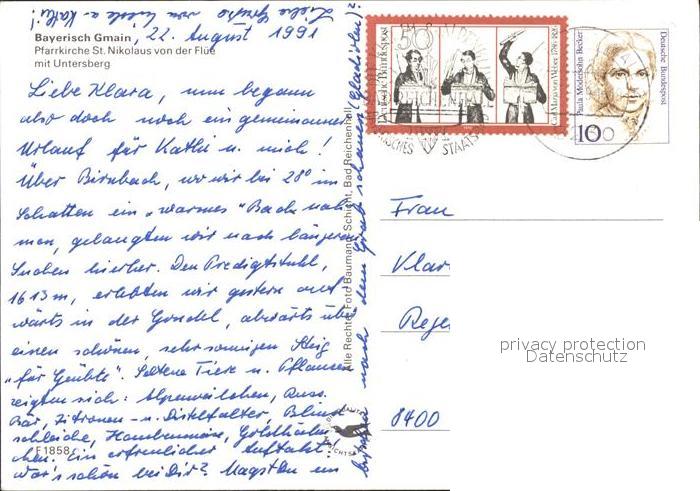 Liebe Grüße von
Bayerisch Gmain, 22. August 1991
Pfarrkirche St. Nikolaus von der Flüe
mit Untersberg
Liebe Klara, nun begann
also doch noch ein gemeinsamer
Urlaub für Kathi u. mich!
Über Birnbach, wo wir bei 28° im
Schatten ein „warmes" Bad nah-
men, gelangten wir nach längerem
Suchen hierher. Den Predigtstuhl,
1613 m, erlebten wir gestern auf
wärts in der Gondel, abwärts über
einen schönen, sehr sonnigen Steig
„für Geübte". Seltene Tiere u. Pflanzen
zeigten sich: Alpenveilchen, Russ.
Bär, Zitronen- u. Distelfalter, Blind
schleiche, Haubenmeise, Goldhähn
chen. Ein erfreulicher Auftakt!
War's schön bei Dir? Magst Du
nach dem Grab schauen (Gladiolen)?
F 1858
Alle Rechte: Foto Baumann-Schicht, Bad Reichenhall
Deutsche Bundespost
50
Carl Maria von Weber 1786-1826
Paula Modersohn-Becker
Deutsche Bundespost
100
STAATS
Frau
Klar
Rege
8400
privacy protection
Datenschutz